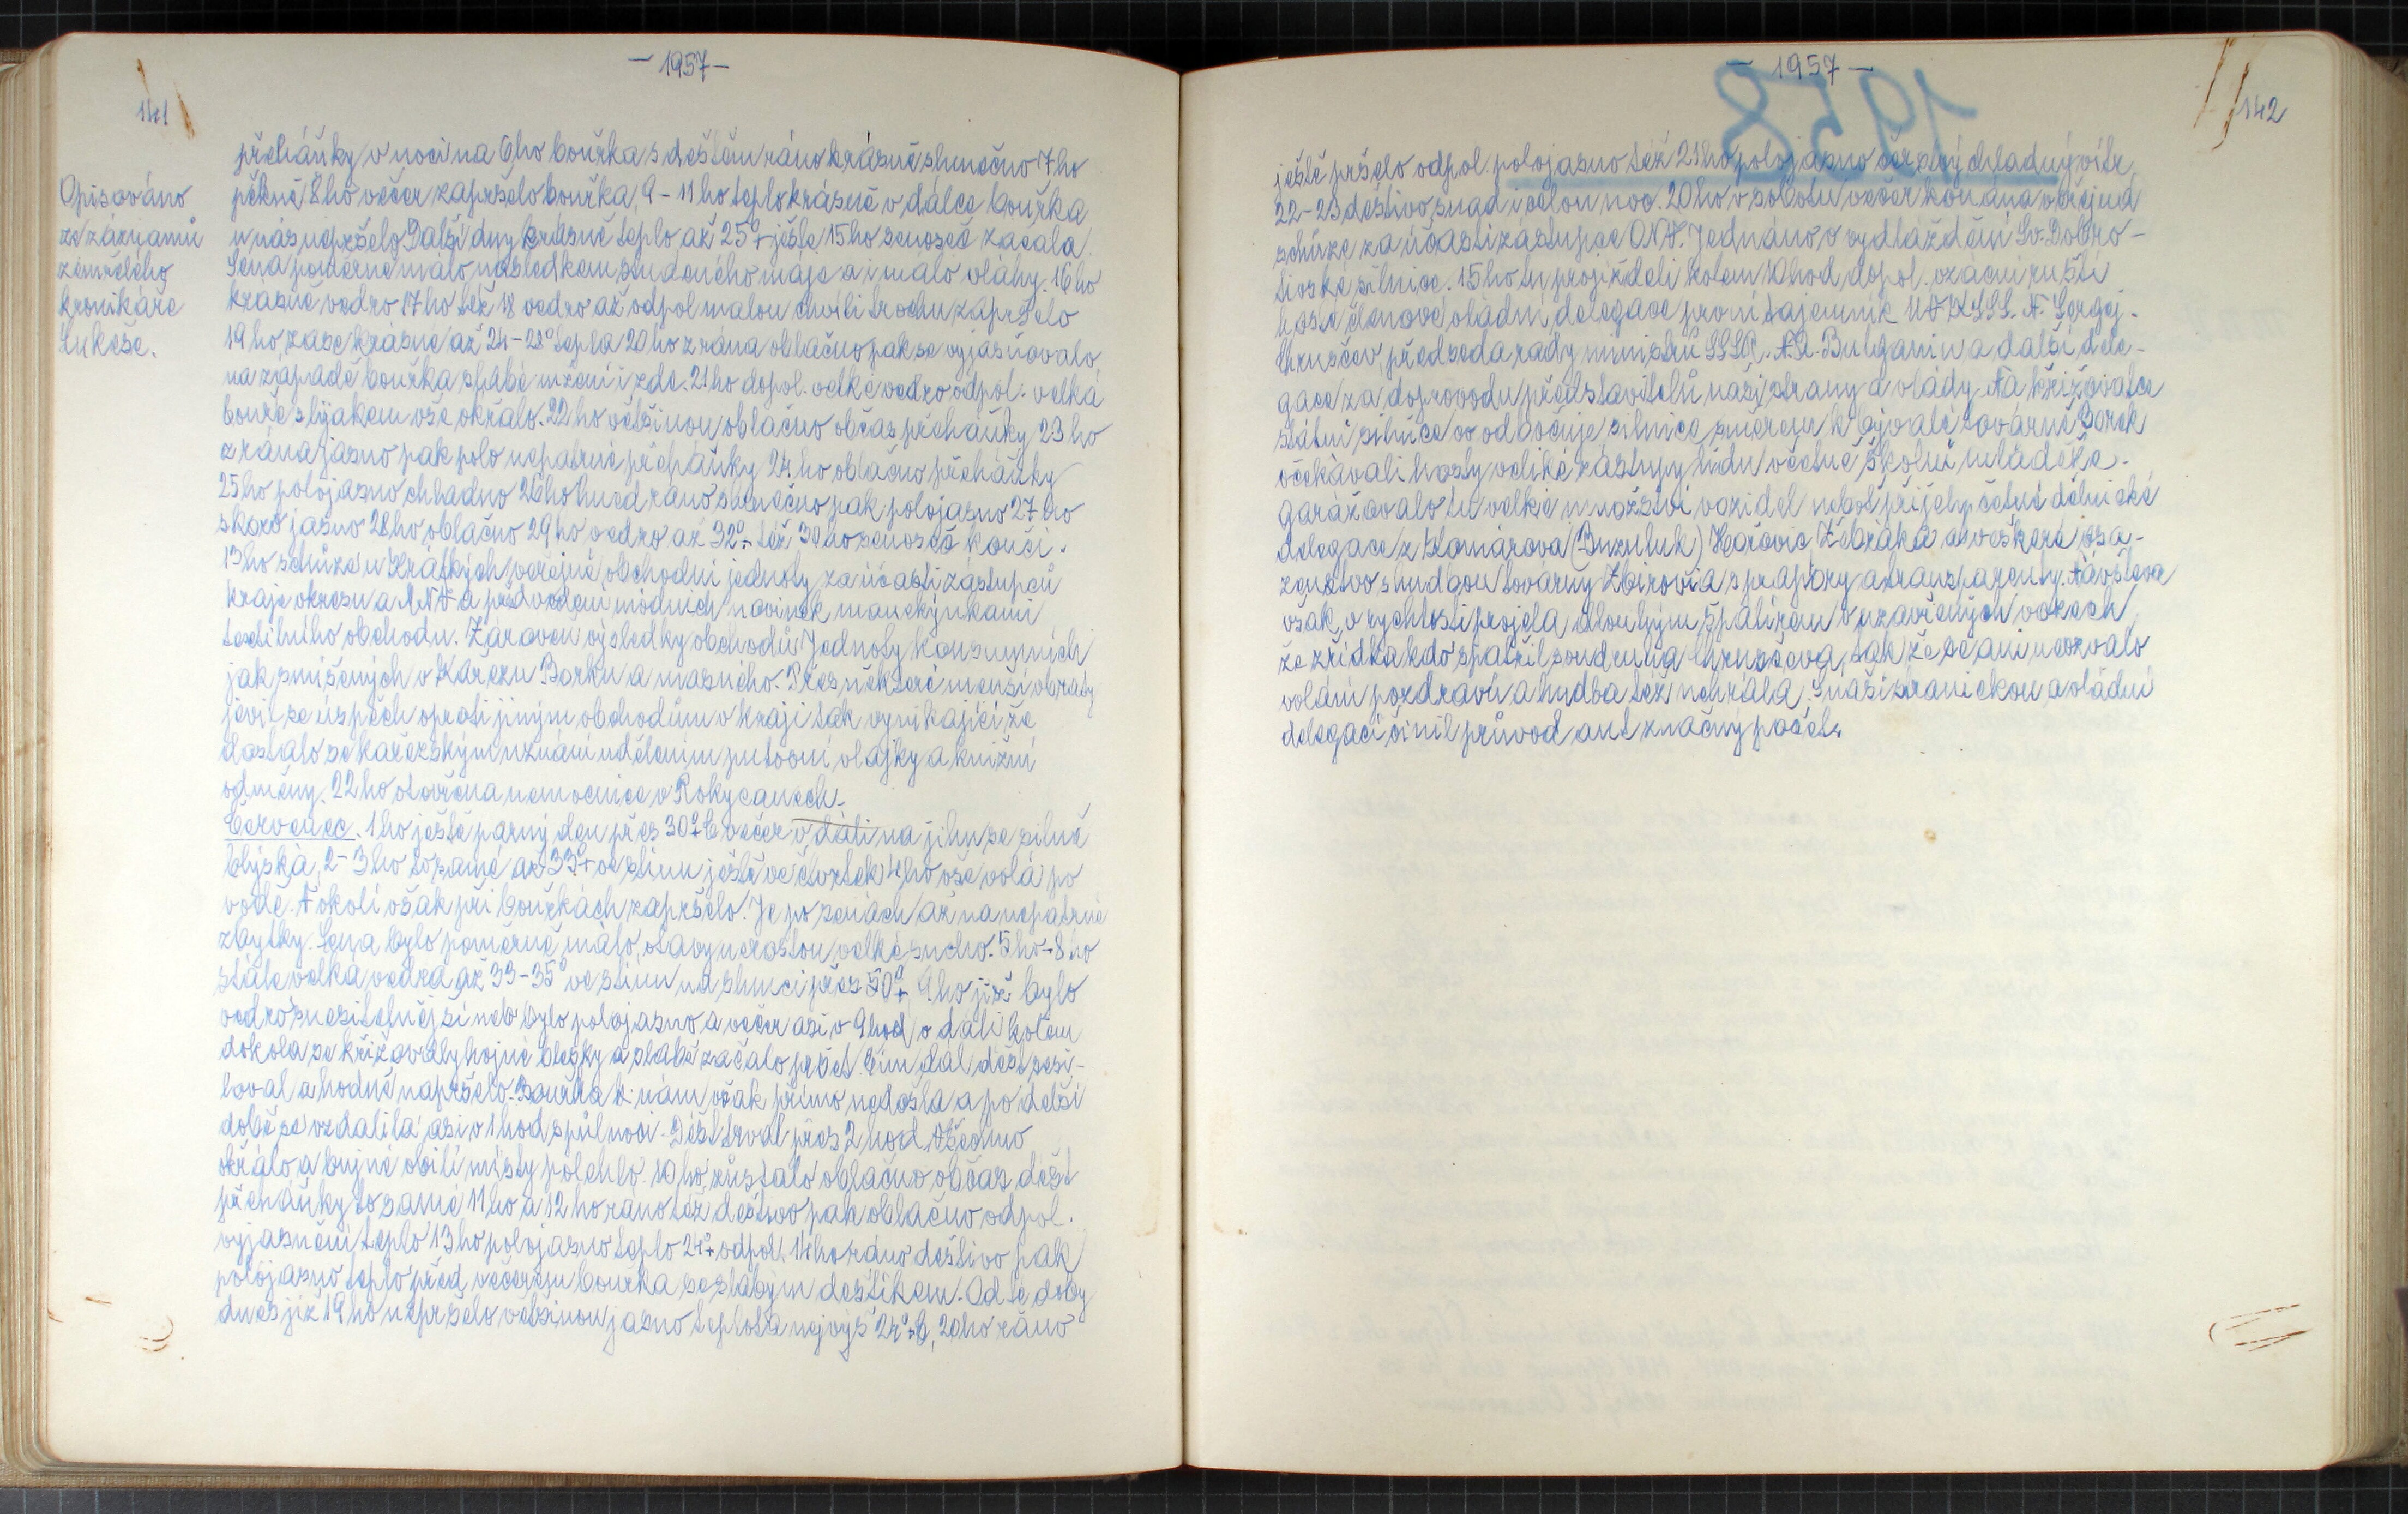 — 1957 —
141
Opisováno
ze záznamů
zemřelého
kronikáře
Lukeše.
přeháňky v noci na 6ho bouřka s deštěm ráno krásně slunečno 7ho
pěkně 8ho večer zapršelo bouřka, 9 - 11ho teplo krásně v dálce bouřka
u nás nepršelo. Další dny krásně teplo až 25°+ ještě 15ho senoseč začala.
Sena poměrně málo následkem studeného máje a i málo vláhy. 16ho
krásně vedro 17ho též 18 vedro až odpol malou chvíli trochu zapršelo
19ho, zase krásně až 24-28° tepla 20ho z rána oblačno pak se vyjasňovalo,
na západě bouřka slabé mžení i zde. 21ho dopol. velké vedro odpol. velká
bouře s lijákem vše okřálo. 22ho většinou oblačno občas přeháňky 23ho
z rána jasno pak polo nepatrné přeháňky 24.ho oblačno přeháňky
25ho polojasno chladno 26ho hned ráno slunečno pak polojasno 27ho
skoro jasno 28ho oblačno 29ho vedro až 32°+ též 30ho senoseč končí.
13ho schůze u Krátkých veřejně obchodní jednoty za účasti zástupců
kraje okresu a MNV a předvedení módních novinek manekýnkami
textilního obchodu. Zároveň výsledky obchodů Jednoty konsumních
jak smíšených v Kařezu Borku a masného. Přes některé menší obraty
jevil se úspěch oproti jiným obchodům v kraji tak vynikající že
dostalo se kařezským uznání udělením putovní vlajky a knižní
odměny. 22ho otevřena nemocnice v Rokycanech.
Červenec. 1ho ještě parný den přes 30°+C večer v dáli na jihu se silně
blýská, 2-3ho to samé až 33°+ ve stínu ještě ve čtvrtek 4ho vše volá po
vodě. V okolí však při bouřkách zapršelo. Je po senách až na nepatrné
zbytky. Sena bylo poměrně málo, otavy nerostou velké sucho. 5ho-8ho
stále velká vedra až 33-35° ve stínu na slunci přes 50°+ 9ho již bylo
vedro snesitelnější neb bylo polojasno a večer asi v 9hod v dáli kolem
dokola se křižovaly hojné blesky a slabě začalo pršet. Čím dál déšť zesi-
loval a hodně napršelo. Bouřka k nám však přímo nedošla a po delší
době se vzdálila asi v 1hod s půlnoci. Déšť trval přes 2 hod. Všechno
okřálo a bujné obilí místy polehlo. 10ho, zůstalo oblačno občas déšť
přeháňky to samé 11ho a 12ho ráno též deštivo pak oblačno odpol.
vyjasnění teplo 13ho polojasno teplo 24°+ odpol. 14ho ráno deštivo pak
polojasno teplo před večerem bouřka se slabým deštíkem. Od té doby
dnes již 19ho nepršelo většinou jasno teplota nejvýš 24°+C, 20ho ráno
— 1957 —
1958
142
ještě pršelo odpol. polojasno též 21ho polojasno čerstvý chladný vítr,
22-23 deštivo snad i celou noc. 20ho v sobotu večer konána veřejná
schůze za účasti zástupce ONV. Jednáno o vydláždění Sv. Dobro-
tivské silnice. 15ho tu projížděli kolem 10hod dopol. vzácní ruští
hosté členové vládní delegace první tajemník ÚV KSSS. N. Sergej.
Chruščev, předseda rady ministrů SSSR. N.A. Bulganin a další dele-
gace za doprovodu představitelů naší strany a vlády. Na křižovatce
státní silnice co odbočuje silnice směrem k bývalé továrně Borek
očekávali hosty veliké zástupy lidu včetně školní mládeže.
Garážovalo tu velké množství vozidel neboť přijely četné dělnické
delegace z Komárova (Buzuluk) Hořovic, Žebráka a veškeré osa-
zenstvo s hudbou továrny Zbirovia s prapory a transparenty. Návštěva
však v rychlosti projela dlouhým špalírem v uzavřených vozech
že zřídka kdo spatřil soudruha Chruščeva, tak že se ani neozvalo
volání pozdravů a hudba též nehrála. S naší stranickou a vládní
delegací činil průvod aut značný počet.